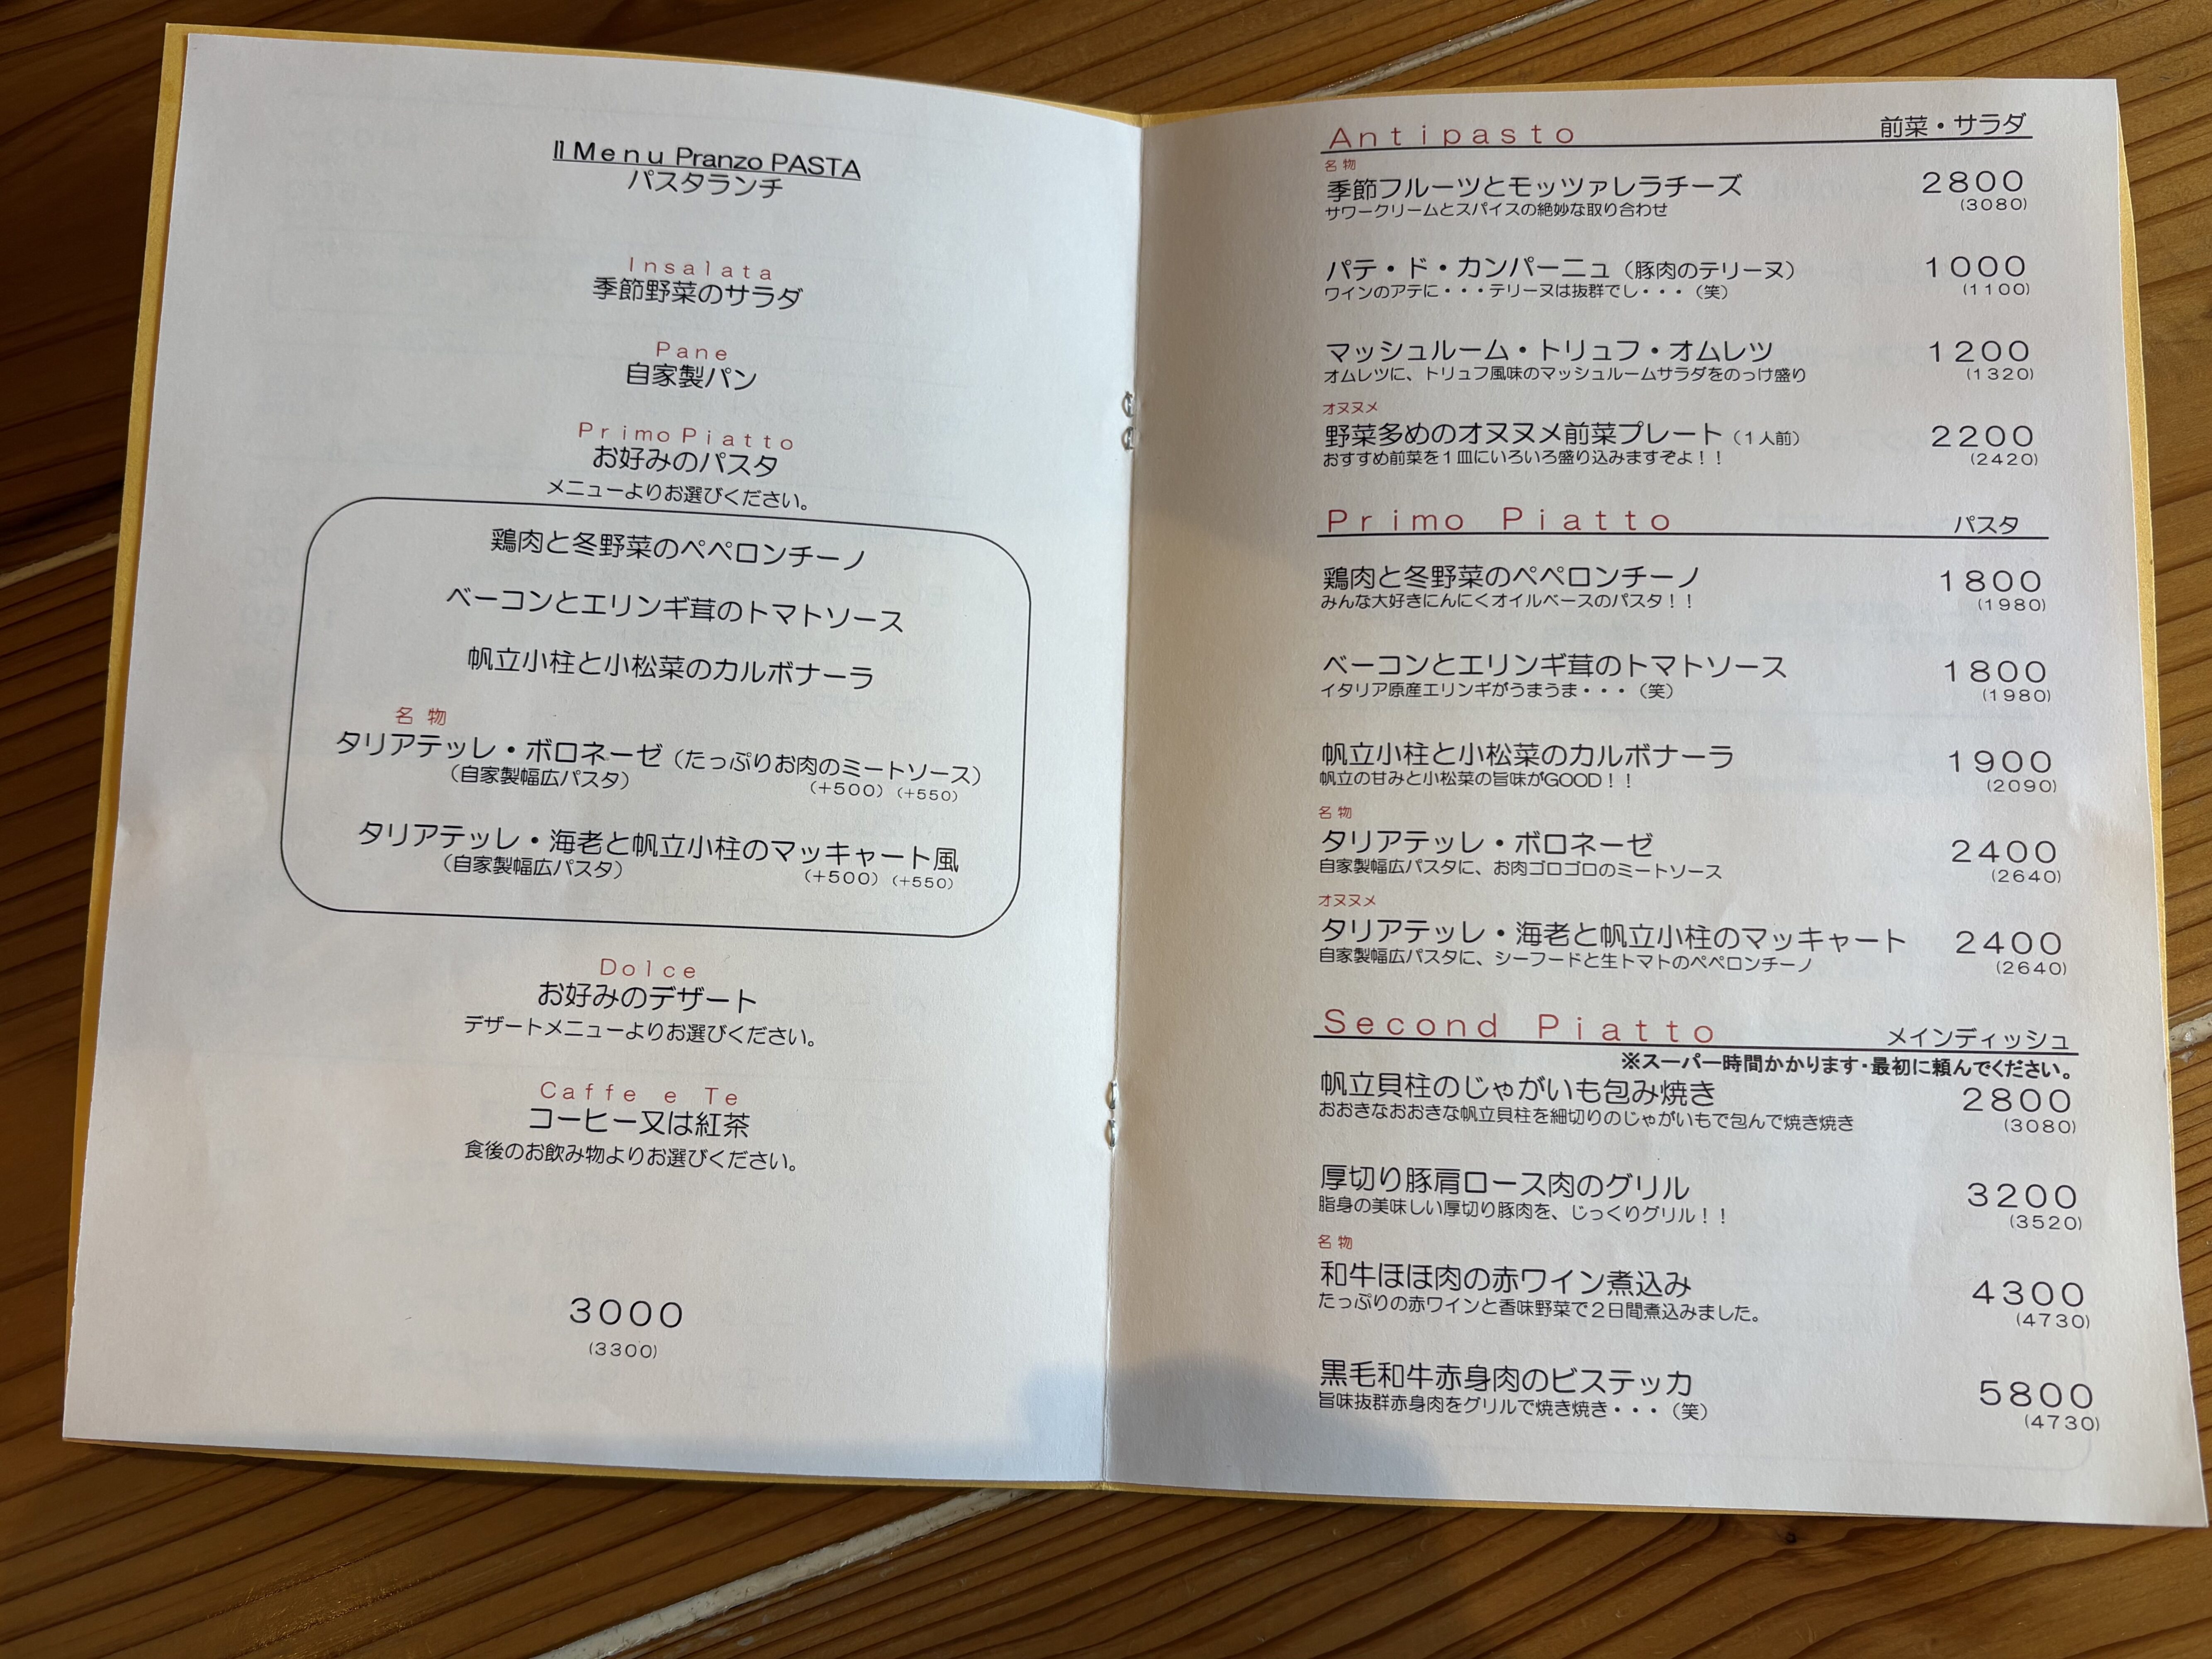 Il Menu Pranzo PASTA
パスタランチ
Insalata
季節野菜のサラダ
Pane
自家製パン
Primo Piatto
お好みのパスタ
メニューよりお選びください。
鶏肉と冬野菜のペペロンチーノ
ベーコンとエリンギ茸のトマトソース
帆立小柱と小松菜のカルボナーラ
名物
タリアテッレ・ボロネーゼ（たっぷりお肉のミートソース）
（自家製幅広パスタ） （+500）（+550）
タリアテッレ・海老と帆立小柱のマッキャート風
（自家製幅広パスタ） （+500）（+550）
Dolce
お好みのデザート
デザートメニューよりお選びください。
Caffe e Te
コーヒー又は紅茶
食後のお飲み物よりお選びください。
3000
(3300)
Antipasto 前菜・サラダ
名物
季節フルーツとモッツァレラチーズ 2800
サワークリームとスパイスの絶妙な取り合わせ (3080)
パテ・ド・カンパーニュ（豚肉のテリーヌ） 1000
ワインのアテに・・・テリーヌは抜群でし・・・（笑） (1100)
マッシュルーム・トリュフ・オムレツ 1200
オムレツに、トリュフ風味のマッシュルームサラダをのっけ盛り (1320)
オヌヌメ
野菜多めのオヌヌメ前菜プレート（1人前） 2200
おすすめ前菜を1皿にいろいろ盛り込みますぞよ！！ (2420)
Primo Piatto パスタ
鶏肉と冬野菜のペペロンチーノ 1800
みんな大好きにんにくオイルベースのパスタ！！ (1980)
ベーコンとエリンギ茸のトマトソース 1800
イタリア原産エリンギがうまうま・・・（笑） (1980)
帆立小柱と小松菜のカルボナーラ 1900
帆立の甘みと小松菜の旨味がGOOD！！ (2090)
名物
タリアテッレ・ボロネーゼ 2400
自家製幅広パスタに、お肉ゴロゴロのミートソース (2640)
オヌヌメ
タリアテッレ・海老と帆立小柱のマッキャート 2400
自家製幅広パスタに、シーフードと生トマトのペペロンチーノ (2640)
Second Piatto メインディッシュ
※スーパー時間かかります・最初に頼んでください。
帆立貝柱のじゃがいも包み焼き 2800
おおきなおおきな帆立貝柱を細切りのじゃがいもで包んで焼き焼き (3080)
厚切り豚肩ロース肉のグリル 3200
脂身の美味しい厚切り豚肉を、じっくりグリル！！ (3520)
名物
和牛ほほ肉の赤ワイン煮込み 4300
たっぷりの赤ワインと香味野菜で2日間煮込みました。 (4730)
黒毛和牛赤身肉のビステッカ 5800
旨味抜群赤身肉をグリルで焼き焼き・・・（笑） (4730)